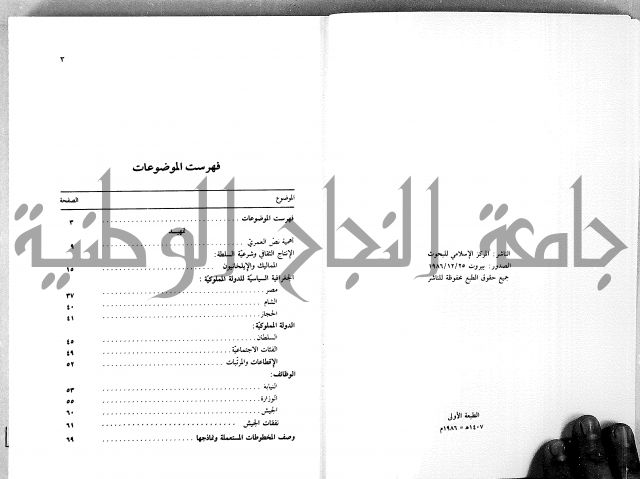 الناشر: المركز الإسلامي للبحوث
الصدور: بيروت ١٩٨٦/١٢/٢٥
جميع حقوق الطبع محفوظة للناشر
الطبعة الأولى
١٤٠٧هـ = ١٩٨٦م
٣
فهرست الموضوعات
الموضوع الصفحة
فهرست الموضوعات ٣
تمهيد
أهمية نصّ العمريّ ٩
الإنتاج الثقافي وشرعيّة السلطة:
المماليك والإيلخانيون ١٥
الجغرافية السياسيّة للدولة المملوكيّة:
مصر ٣٧
الشام ٤٠
الحجاز ٤١
الدولة المملوكيّة:
السلطان ٤٥
الفئات الاجتماعيّة ٤٩
الإقطاعات والمرتّبات ٥٢
الوظائف:
النيابة ٥٣
الوزارة ٥٥
الجيش ٦٠
نفقات الجيش ٦١
وصف المخطوطات المستعملة ونماذجها ٦٩
جامعة النجاح الوطنية